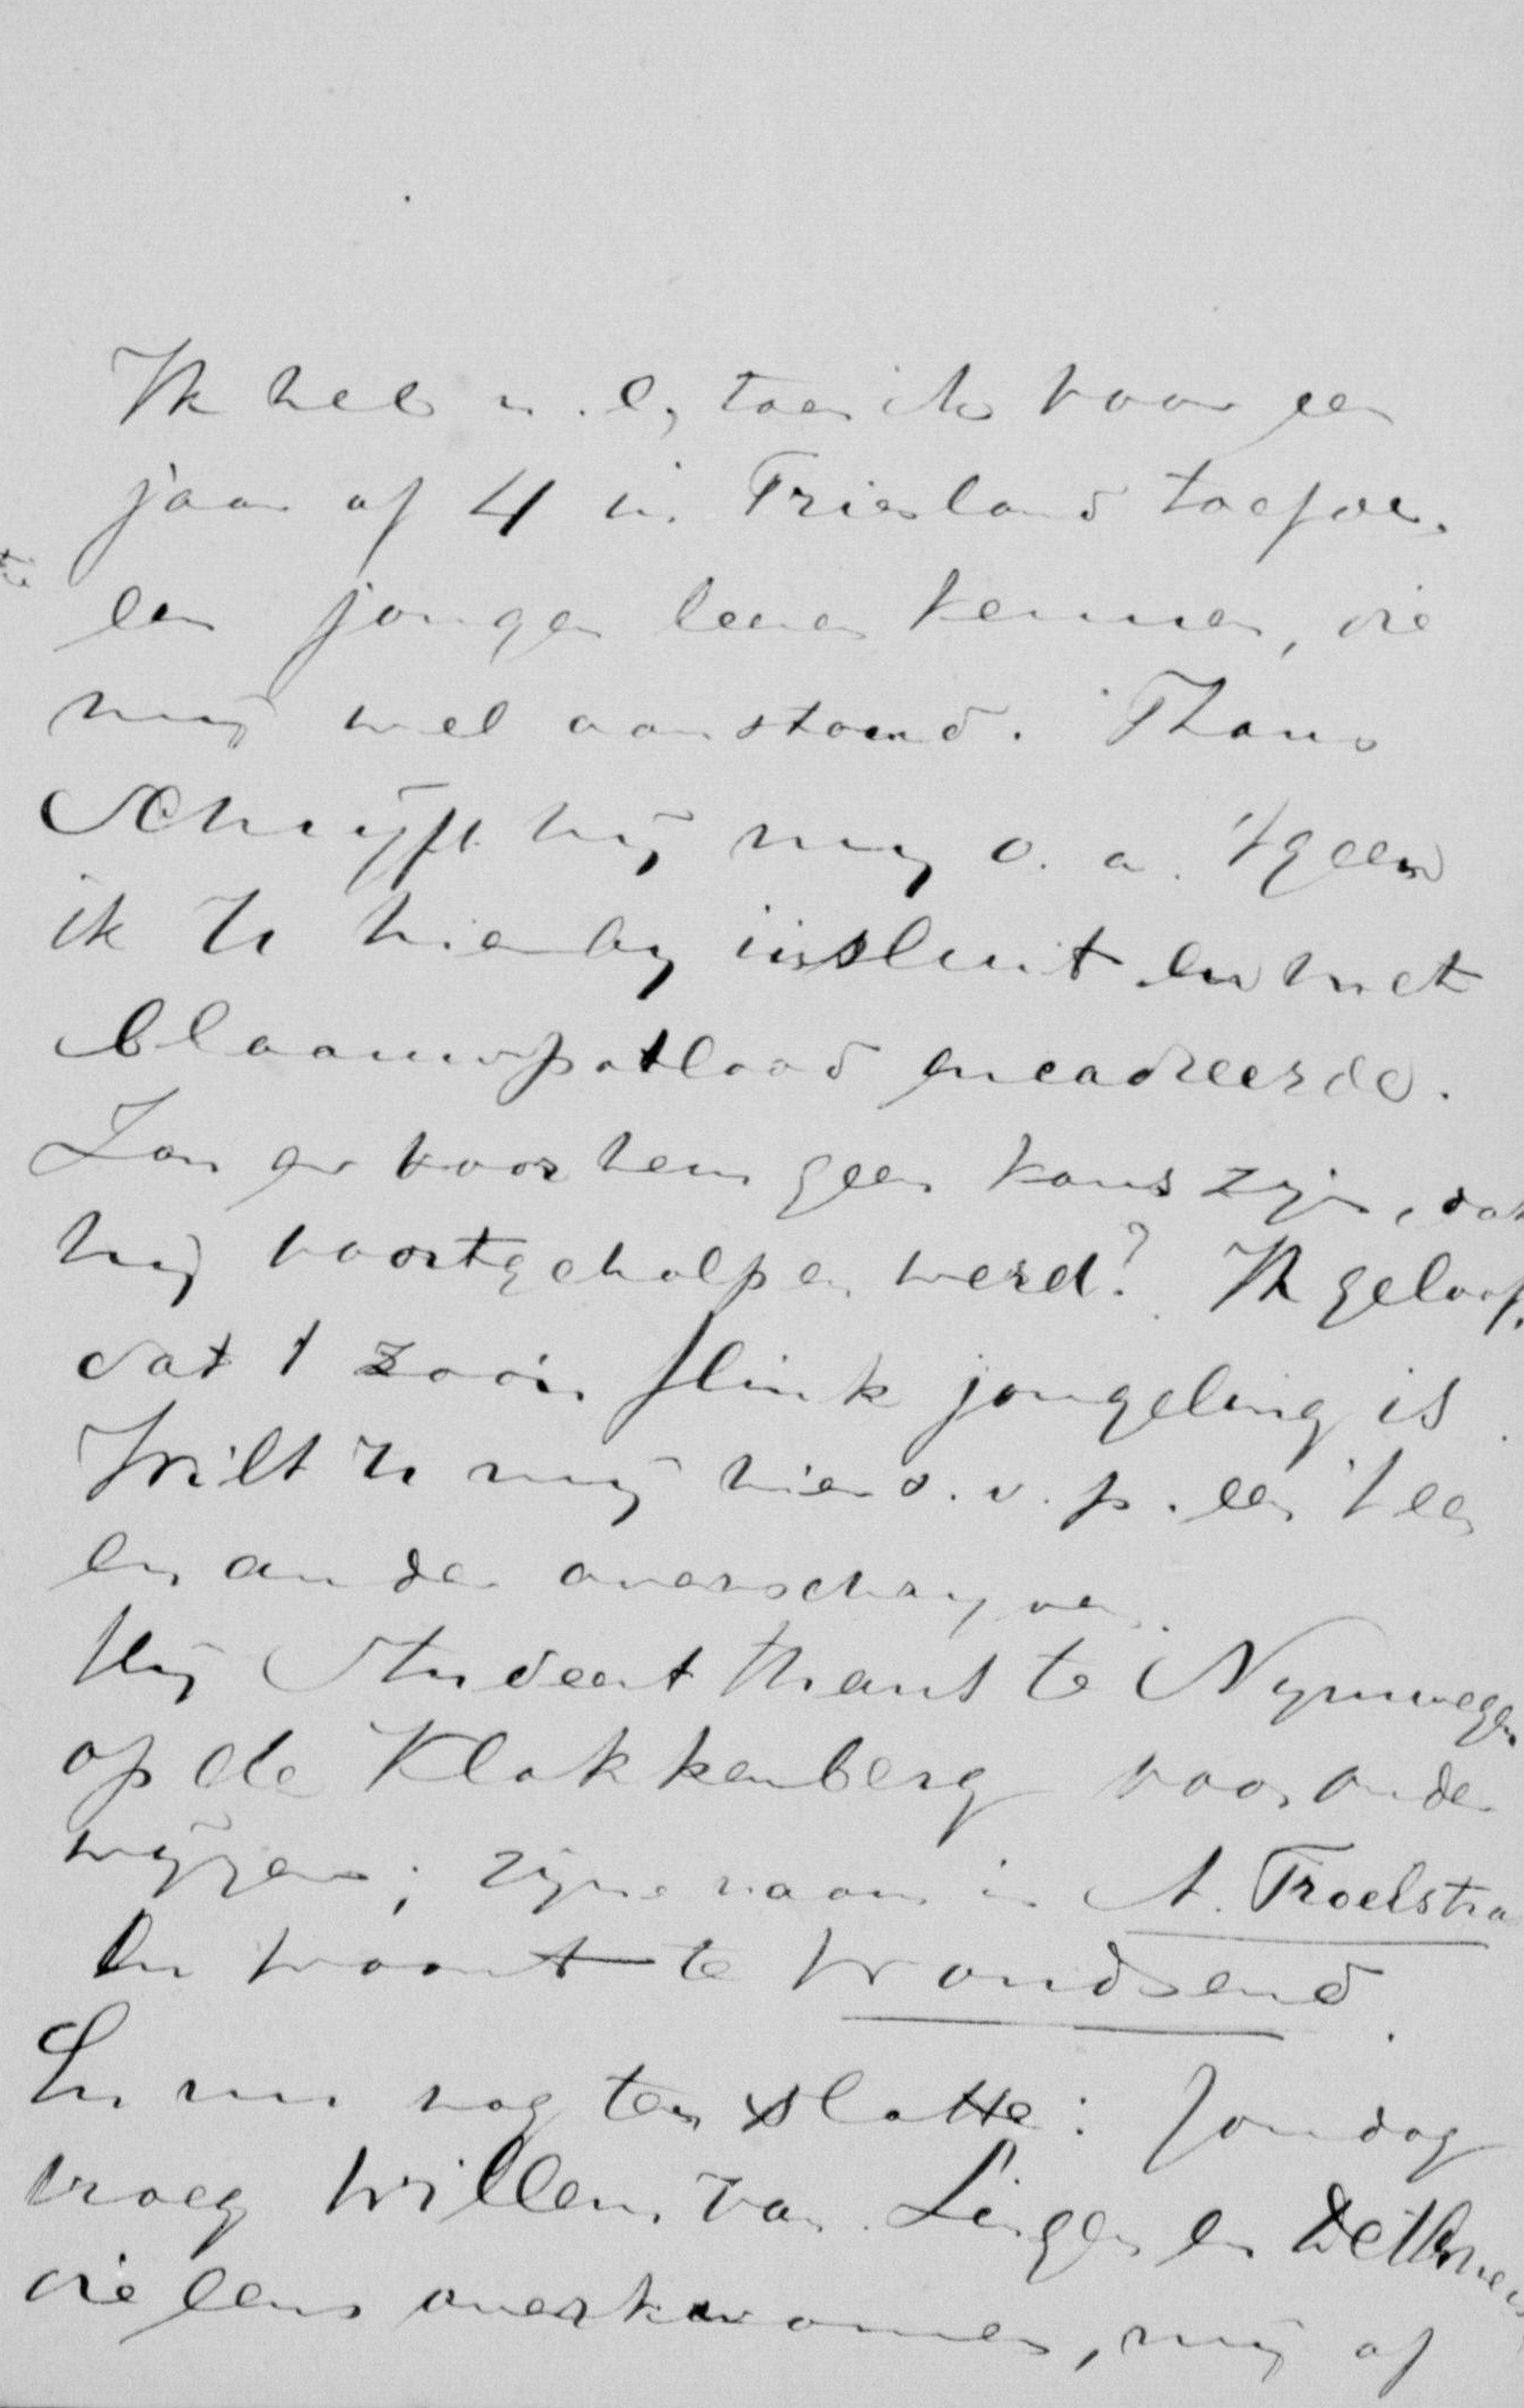 Ik heb n.l, toen ik voor een
jaar of 4 in Friesland toefde.
een jongen leeren kennen, die
mij wel aanstond. Thans
schrijft hij mij o.a. 'tgeen
ik U hierby insluit en met
blaauwpotlood encadreerde.
Zou er voor hem geen kans zijn, dat
hij voortgeholpen werd? Ik geloof,
dat 't zoo'n flink jongeling is.
Wilt U mij hier o.v.p. een 't een
en ander overschryven.
Hij studeert thans te Nymwegen
op de Klokkenberg voor onder
wijzer; zijne naam is A. Troelstra
en woont te Woudsend.
En nu nog ten slotte: Zondag
vroeg Willem van Lingen en
die eens overkwamen, mij of